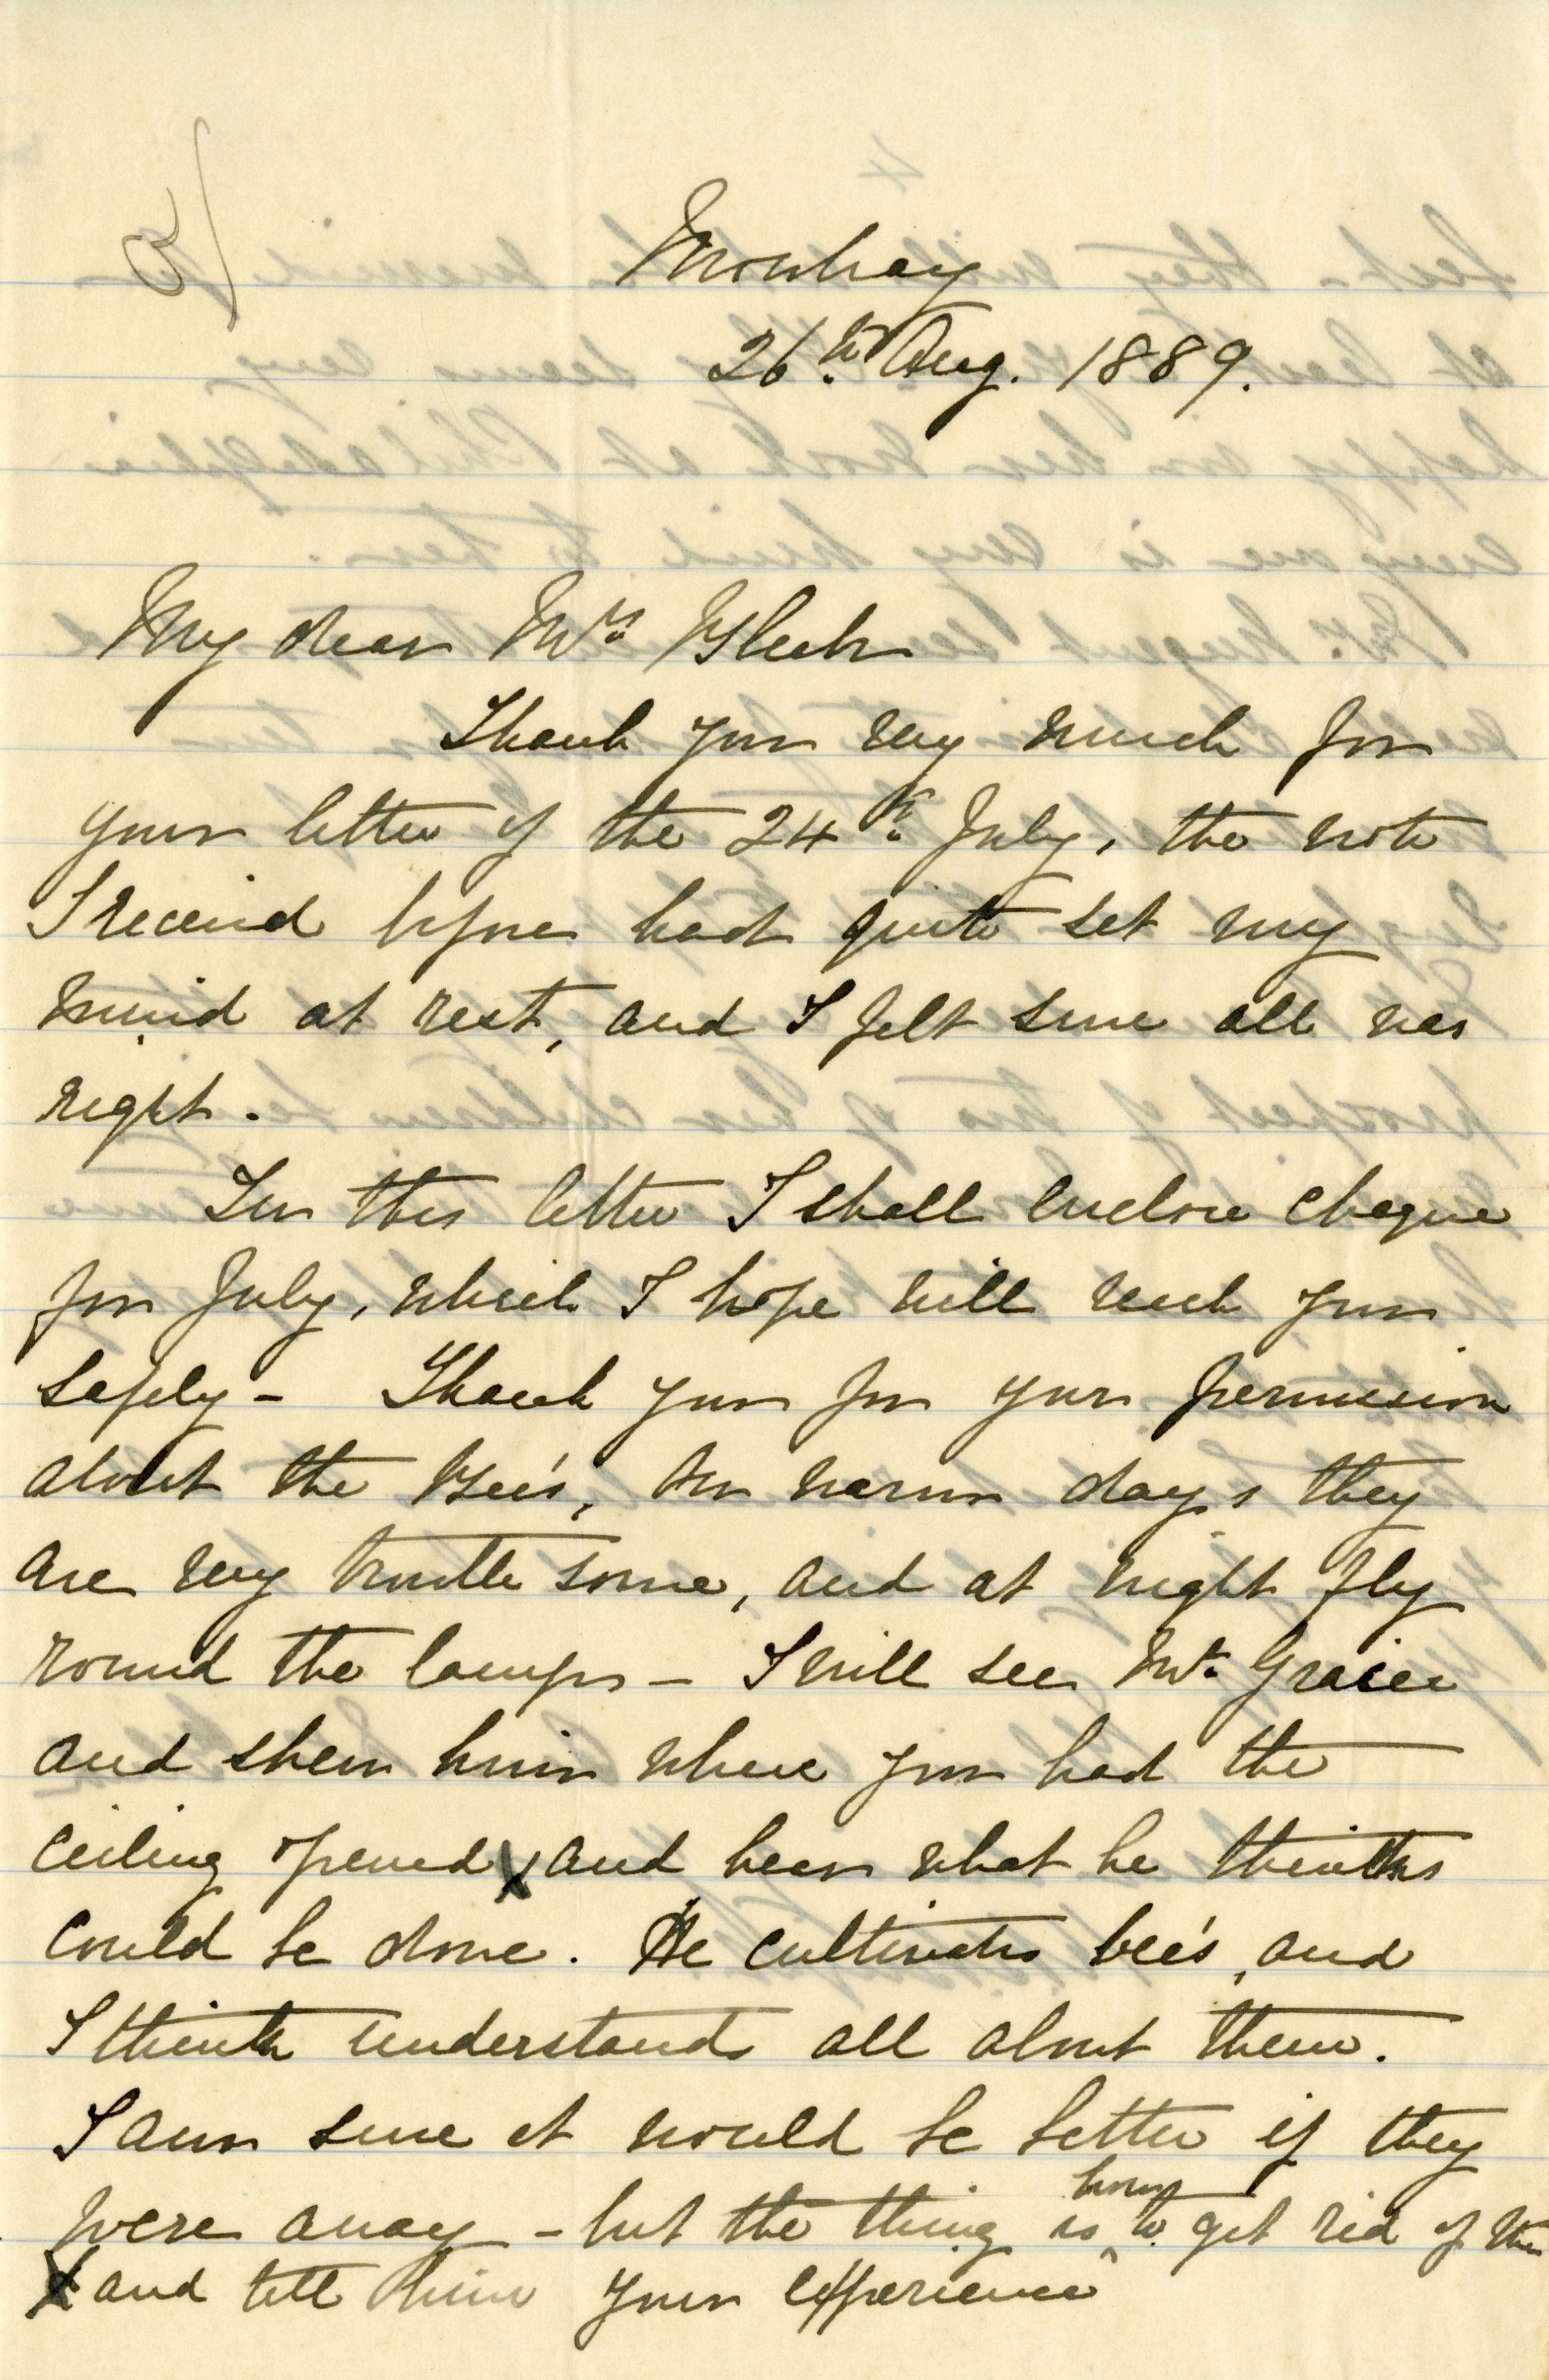 3/
Mowbray
26th Aug. 1889.
My dear Mrs Bleek
Thank you very much for
your letter of the 24th July, the note
I received before had quite set my
mind at rest, and I felt sure all was
right.
In this letter I shall enclose cheque
for July, which I hope will reach you
safely - Thank you for your permission
about the Bee's, on warm days they
are very troublesome, and at night fly
round the lamps - I will see Mr.
and shew him where you had the
ceiling opened X, and hear what he thinks
could be done. He cultivates bee's, and
I think understands all about them.
I am sure it would be better if they
were away - but the thing is how to get rid of them
X and tell him your experience